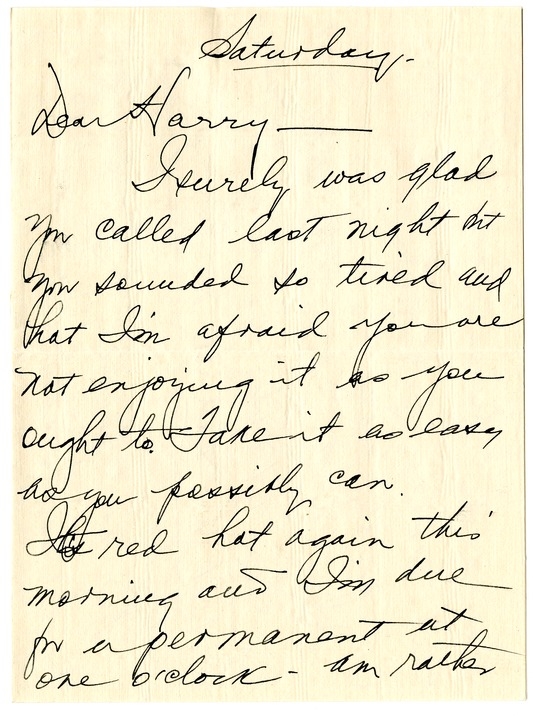 Saturday.
Dear Harry—
I surely was glad
you called last night but
you sounded so tired and
hot I'm afraid you are
not enjoying it as you
ought to. Take it as easy
as you possibly can.
It's red hot again this
morning and I'm due
for a permanent at
one o'clock - am rather